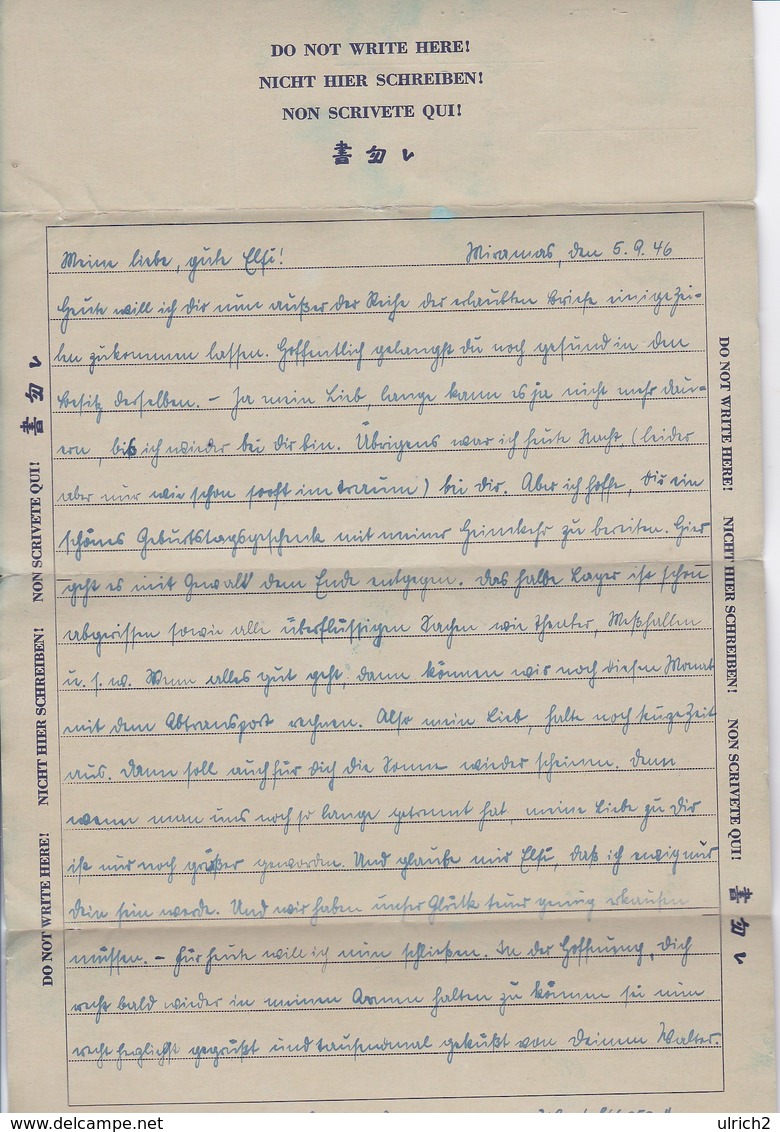 DO NOT WRITE HERE!
NICHT HIER SCHREIBEN!
NON SCRIVETE QUI!
書勿レ
Meine liebe, gute Elfi! Miramas, den 5.9.46
Heute will ich dir nun außer der Reihe der erlaubten Briefe einige Zei-
len zukommen lassen. Hoffentlich gelangst du noch gesund in den
Besitz derselben. – Ja mein Lieb, lange kann es ja nicht mehr dau-
ern, bis ich wieder bei dir bin. Übrigens war ich heute Nacht, (leider
aber nur wie schon sooft im Traum) bei dir. Aber ich hoffe, dir ein
schönes Geburtstagsgeschenk mit meiner Heimkehr zu bereiten. Hier
geht es mit Gewalt dem Ende entgegen. Das halbe Lager ist schon
abgerissen sowie alle überflüssigen Sachen wie Theater, Meßhallen
u.s.w. Wenn alles gut geht, dann können wir noch diesen Monat
mit dem Abtransport rechnen. Also mein Lieb, halte noch kurze Zeit
aus. Dann soll auch für dich die Sonne wieder scheinen. Denn
wenn man uns noch so lange getrennt hat, meine Liebe zu dir
ist nur noch größer geworden. Und glaube mir Elfi, daß ich ewig nur
dein sein werde. Und wir haben unser Glück teuer genug erkaufen
müssen. – Für heute will ich nun schließen. In der Hoffnung, dich
recht bald wieder in meinen Armen halten zu können sei nun
recht herzlichst gegrüßt und tausendmal geküßt von deinem Walter.
DO NOT WRITE HERE! NICHT HIER SCHREIBEN! NON SCRIVETE QUI! 書勿レ
DO NOT WRITE HERE! NICHT HIER SCHREIBEN! NON SCRIVETE QUI! 書勿レ
ulrich2